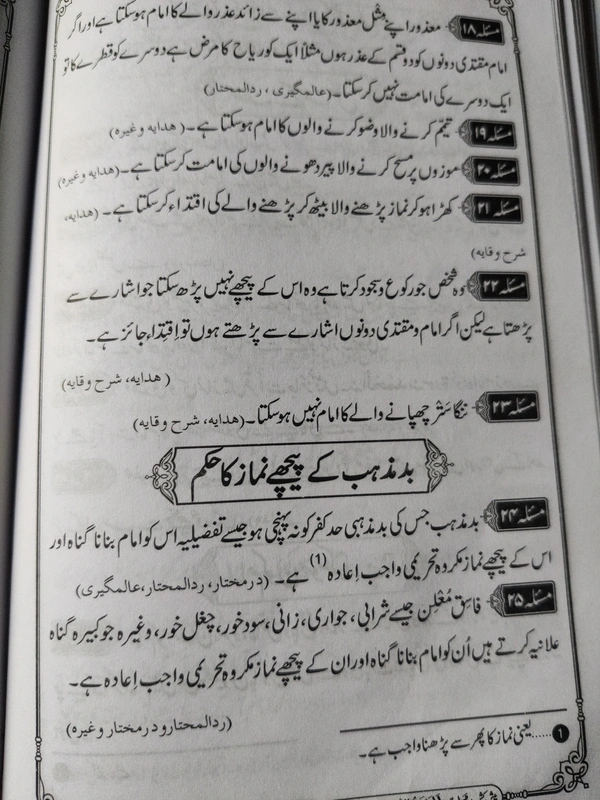 مسئلہ ۱۸ معذور اپنے مثل معذور کا یا اپنے سے زائد عذر والے کا امام ہوسکتا ہے اور اگر
امام مقتدی دونوں کو دو قسم کے عذر ہوں مثلاً ایک کو ریاح کا مرض ہے دوسرے کو قطرے کا تو
ایک دوسرے کی امامت نہیں کرسکتا۔ (عالمگیری ، ردالمحتار)
مسئلہ ۱۹ تیمّم کرنے والا وضو کرنے والوں کا امام ہوسکتا ہے۔ (ھدایہ وغیرہ)
مسئلہ ۲۰ موزوں پر مسح کرنے والا پیر دھونے والوں کی امامت کرسکتا ہے۔ (ھدایہ وغیرہ)
مسئلہ ۲۱ کھڑا ہوکر نماز پڑھنے والا بیٹھ کر پڑھنے والے کی اقتداء کرسکتا ہے۔ (ھدایہ،
شرح وقایہ)
مسئلہ ۲۲ وہ شخص جو رکوع و سجود کرتا ہے وہ اس کے پیچھے نہیں پڑھ سکتا جو اشارے سے
پڑھتا ہے لیکن اگر امام و مقتدی دونوں اشارے سے پڑھتے ہوں تو اِقتِداء جائز ہے۔
(ھدایہ، شرح وقایہ)
مسئلہ ۲۳ ننگا سَتْر چھپانے والے کا امام نہیں ہوسکتا۔ (ھدایہ، شرح وقایہ)
بد مذہب کے پیچھے نماز کا حکم
مسئلہ ۲۴ بد مذہب جس کی بدمذہبی حد کفر کو نہ پہنچی ہو جیسے تفضیلیہ اس کو امام بنانا گناہ اور
اس کے پیچھے نماز مکروہ تحریمی واجب اِعادہ (1) ہے۔ (درمختار، ردالمحتار، عالمگیری)
مسئلہ ۲۵ فاسِق مُعْلِن جیسے شرابی، جواری، زانی، سود خور، چغل خور، وغیرہ جو کبیرہ گناہ
علانیہ کرتے ہیں اُن کو امام بنانا گناہ اور ان کے پیچھے نماز مکروہ تحریمی واجب اِعادہ ہے۔
(ردالمحتار و درمختار وغیرہ)
1 .....یعنی نماز کا پھر سے پڑھنا واجب ہے۔